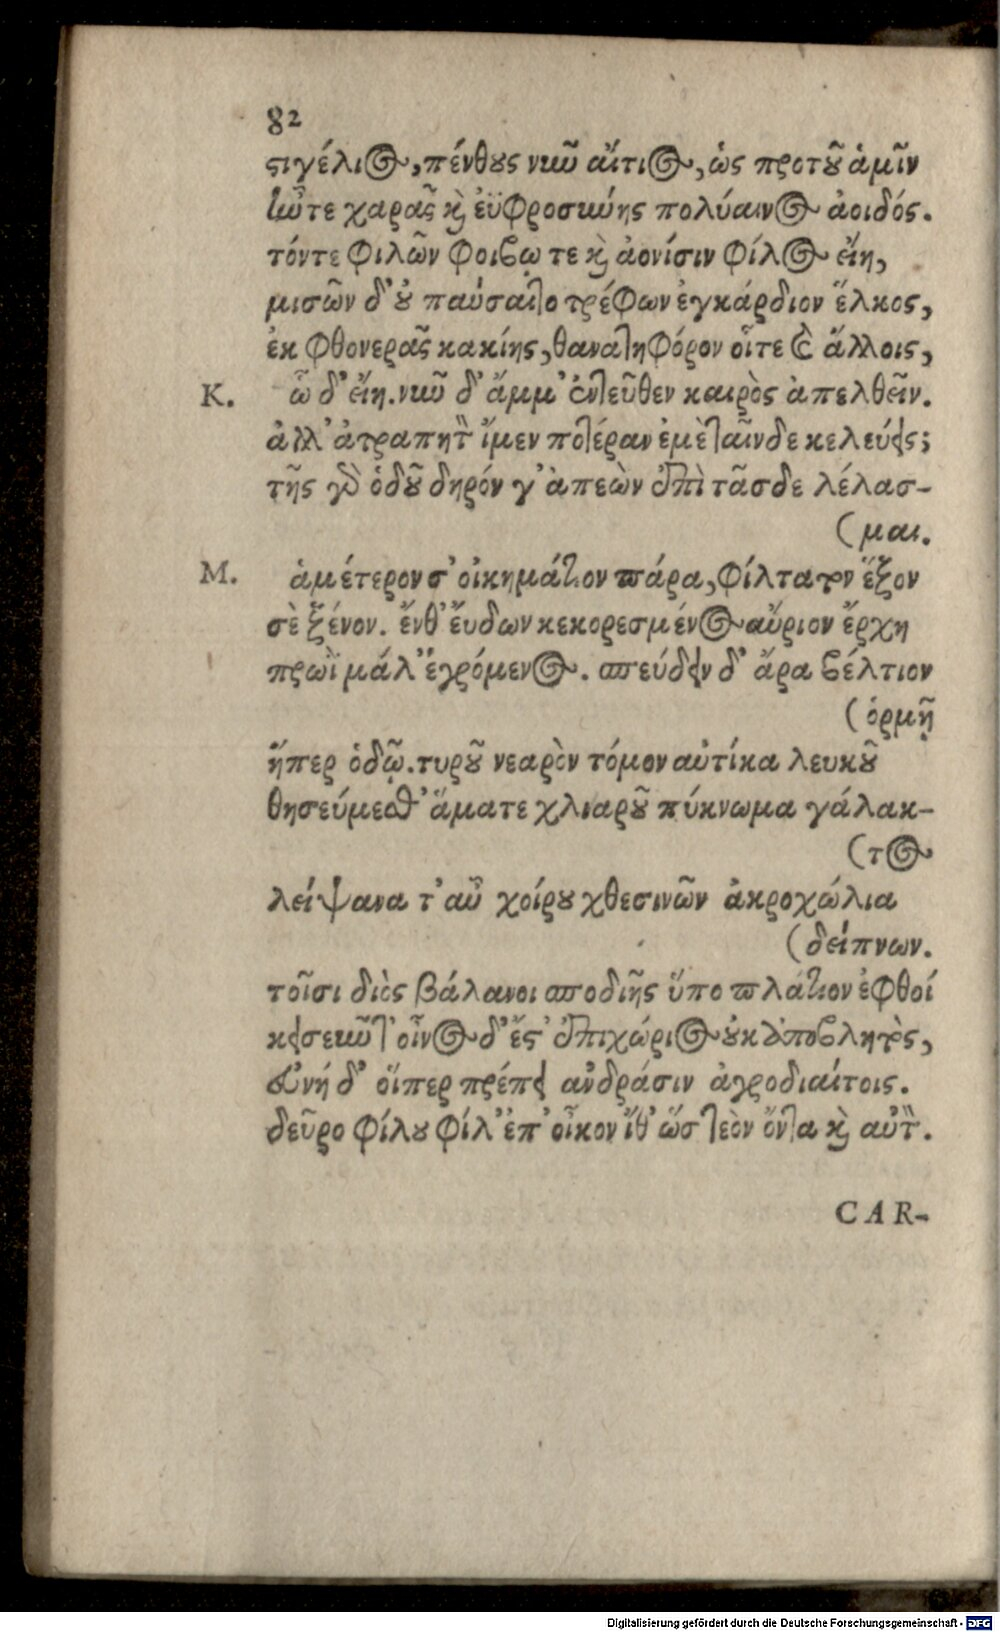 82
στιγέλιος, πένθους νῦν αἴτιος, ὡς προτοῦ ἁμῖν
ἦν τε χαρᾶς καὶ ἐϋφροσύνης πολύαινος ἀοιδός.
τόν τε φιλῶν φοίβῳ τε καὶ ἀονίσιν φίλος εἴη,
μισῶν δ' οὐ παύσαιτο τρέφων ἐγκάρδιον ἕλκος,
ἐκ φθονερᾶς κακίης, θανατηφόρον οἷτε καὶ ἄλλοις,
Κ. ὧδ' εἴη. νῦν δ' ἄμμ' ἐντεῦθεν καιρὸς ἀπελθεῖν.
ἀλλ' ἀτραπητὸν ἴμεν ποτέραν ἐμὲ ταῖνδε κελεύεις;
τῆς γὰρ ὁδοῦ δηρόν γ' ἀπεὼν ἐπὶ τᾶσδε λέλασ-
(μαι.
Μ. ἁμέτερον σ' οἰκημάτιον πάρα, φίλτατον ἕξον
σὲ ξένον. ἔνθ' εὕδων κεκορεσμένος αὔριον ἔρχη
πρωῒ μάλ' ἐγρόμενος. σπεύδειν δ' ἄρα βέλτιον
(ὁρμῇ
ἤπερ ὁδῷ. τυροῦ νεαρὸν τόμον αὐτίκα λευκοῦ
θησεύμεσθ' ἅμα τε χλιαροῦ πύκνωμα γάλακ-
(τος
λείψανα τ' αὖ χοίρου χθεσινῶν ἀκροχώλια
(δείπνων.
τοῖσι διὸς βάλανοι σποδιῆς ὕπο πλάτιον ἑφθοί
κείσευντ' οἶνος δ' ἔστ' ἐπιχώριος οὐκ ἀπόβλητος,
εὐνή δ' οἵπερ πρέπει ἀνδράσιν ἀγροδιαίτοις.
δεῦρο φίλου φίλ' ἐπ' οἶκον ἴθ' ὥς τεὸν ὄντα καὶ αὐτόν.
CAR-
Digitalisierung gefördert durch die Deutsche Forschungsgemeinschaft - DFG